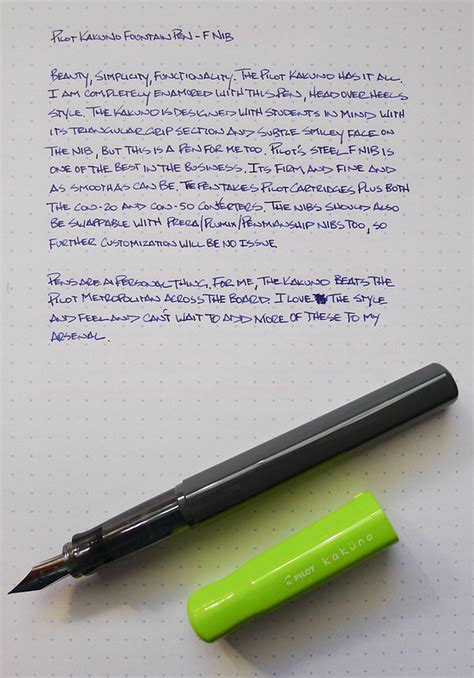 PILOT KAKUNO FOUNTAIN PEN - F NIB
BEAUTY, SIMPLICITY, FUNCTIONALITY. THE PILOT KAKUNO HAS IT ALL.
I AM COMPLETELY ENAMORED WITH THIS PEN, HEAD OVER HEELS
STYLE. THE KAKUNO IS DESIGNED WITH STUDENTS IN MIND WITH
ITS TRIANGULAR GRIP SECTION AND SUBTLE SMILEY FACE ON
THE NIB, BUT THIS IS A PEN FOR ME TOO. PILOT'S STEEL F NIB IS
ONE OF THE BEST IN THE BUSINESS. ITS FIRM, AND FINE AND
AS SMOOTH AS CAN BE. THE PEN TAKES PILOT CARTRIDGES, PLUS BOTH
THE CON-20 AND CON-50 CONVERTERS. THE NIBS SHOULD ALSO
BE SWAPPABLE WITH PRERA/PLUMIX/PENMANSHIP NIBS TOO, SO
FURTHER CUSTOMIZATION WILL BE NO ISSUE.
PENS ARE A PERSONAL THING. FOR ME, THE KAKUNO BEATS THE
PILOT METROPOLITAN ACROSS THE BOARD. I LOVE THE STYLE
AND FEEL AND CAN'T WAIT TO ADD MORE OF THESE TO MY
ARSENAL.
PILOT kaküno